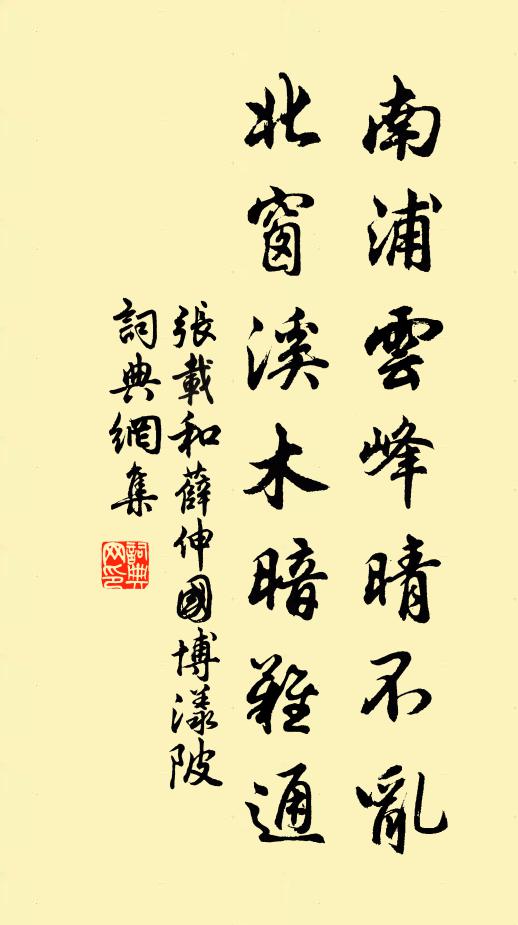 南浦雲峰晴不亂
北窗溪木暗難通
張載和薛伸國博漾陂
詞典網集
詞典网印